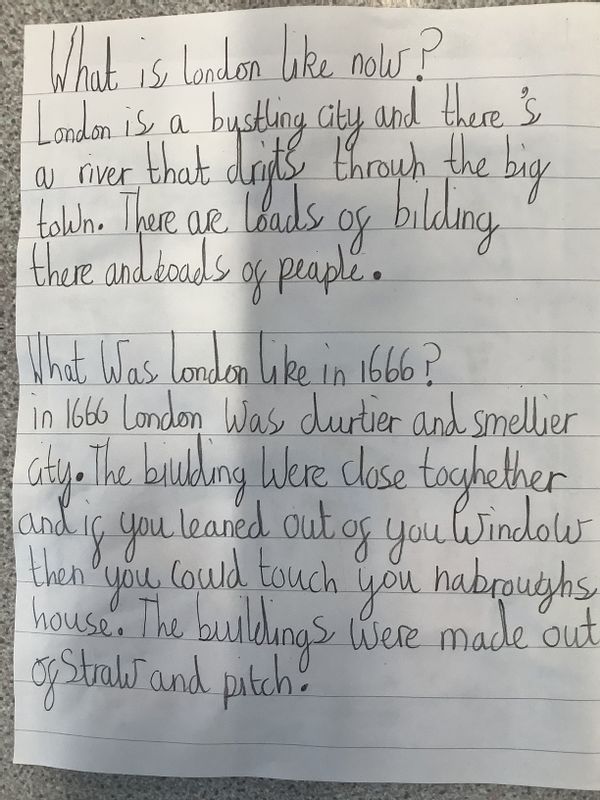 What is london like now?
London is a bustling city and there's
a river that drifts throwh the big
town. There are loads of bilding
there and loads of peaple.
What Was london like in 1666?
in 1666 London Was durtier and smellier
city. The biulding Were close toghether
and if you leaned out of you Window
then you Could touch you nabroughs
house. The buildings Were made out
of Straw and pitch.